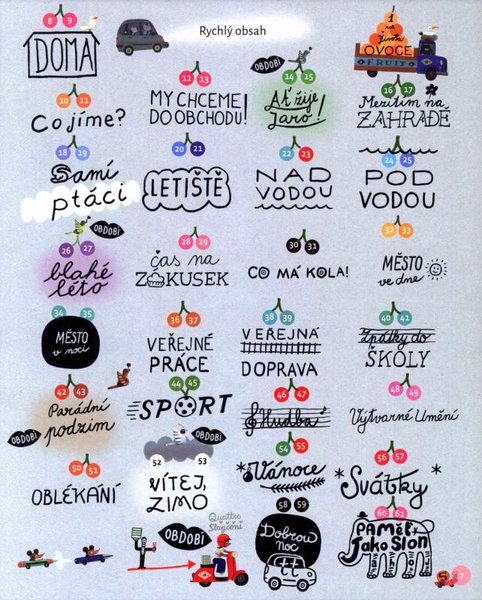 Rychlý obsah
8 9
DOMA
1
OVOCE
FRUIT
10 11
Co jíme?
12 13
MY CHCEME
DO OBCHODU!
OBDOBÍ
14 15
Ať žije
Jaro!
16 17
Mezitím na
ZAHRADĚ
18 19
Samí
ptáci
20 21
LETIŠTĚ
22 23
NAD
VODOU
24 25
POD
VODOU
OBDOBÍ
26 27
blahé
léto
28 29
čas na
ZÁKUSEK
30 31
CO MÁ KOLA!
32 33
MĚSTO
ve dne
34 35
MĚSTO
v noci
36 37
VEŘEJNÉ
PRÁCE
38 39
VEŘEJNÁ
DOPRAVA
40 41
Zpátky do
ŠKOLY
42 43
Parádní
podzim
OBDOBÍ
44 45
SPORT
46 47
Hudba
48 49
Výtvarné Umění
50 51
OBLÉKÁNÍ
OBDOBÍ
52 53
VÍTEJ,
ZIMO
54 55
Vánoce
56 57
Svátky
OBDOBÍ
Quattro
Stagioni
58 59
Dobrou
noc
60 61
PAMĚŤ
Jako Slon
7